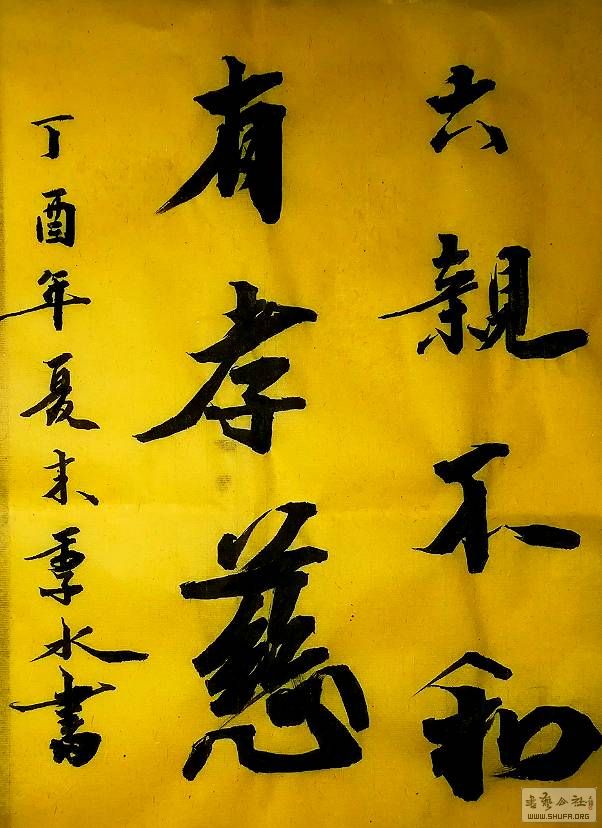 六親不和
有孝慈
丁酉年夏末季水書
书艺公社
WWW.SHUFA.ORG